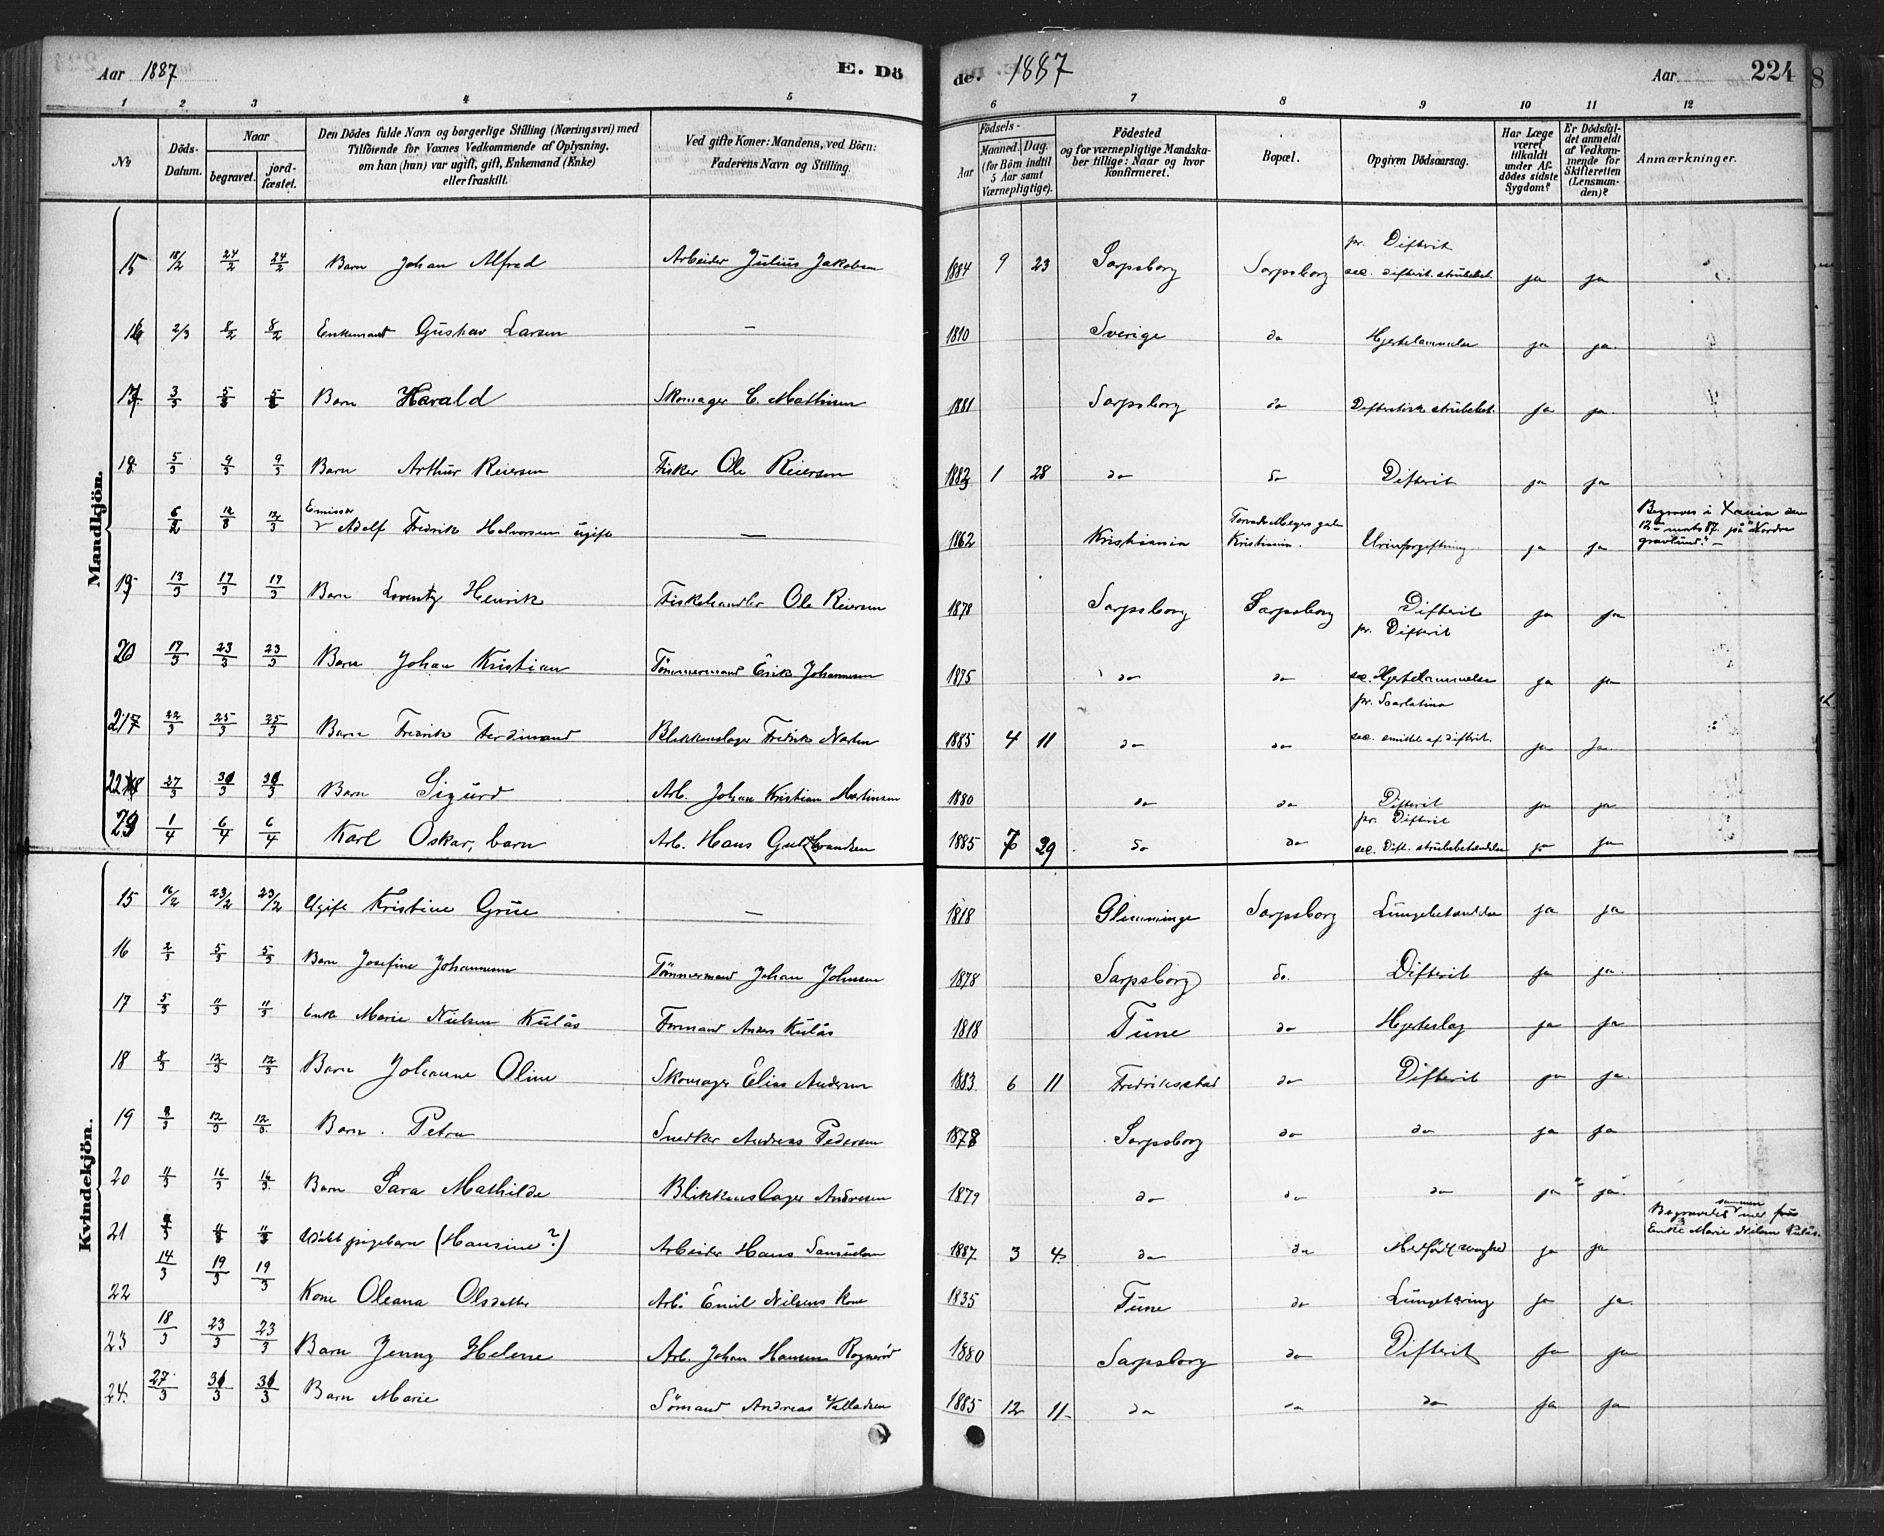 Aar 1887 E. Dö
de. 1887 Aar 224
1 2 3 4 5 6 7 8 9 10 11 12
No
Döds-Datum.
Naar
begravet.
jord-fæstet.
Den Dödes fulde Navn og borgerlige Stilling (Næringsvei) med
Tilföiende for Voxnes Vedkommende af Oplysning,
om han (hun) var ugift, gift, Enkemand (Enke)
eller fraskilt.
Ved gifte Koner: Mandens, ved Börn:
Faderens Navn og Stilling.
Födsels-
Aar
Maaned.
Dag.
(for Börn indtil
5 Aar samt
Værnepligtige).
Födested
og for værnepligtige Mandska-
ber tillige: Naar og hvor
konfirmeret.
Bopæl.
Opgiven Dödsaarsag.
Har Læge
været
tilkaldt
under Af-
dödes sidste
Sygdom?
Er Dödsfal-
det anmeldt
af Vedkom-
mende for
Skifteretten
(Lensman-
den)?
Anmærkninger.
Mandkjön.
15 18/2 24/2 24/2 Barn Johan Alfred Arbeider Julius Jakobsen 1884 9 23 Sarpsborg Sarpsborg pr. Difterit sec. difterit. strubebet. ja ja
16 2/3 8/2 8/2 Enkemand Gustav Larsen — 1810 Sverige do Hjertelammelse ja ja.
17 3/3 5/3 5/3 Barn Harald Skomager C. Mathisen 1881 Sarpsborg do Difteritisk strubebet. ja ja.
18. 5/3 9/3 9/3 Barn Arthur Reiersen Fisker Ole Reiersen 1883 1 28 do do Difterit ja ja
6/2 12/3 12/3 Emissær Adolf Fredrik Halvorsen ugift — 1862 Kristiania Kristiania. Urinforgiftning ja ja Begraves i Xania den 12te marts 87. på "Nordre gravlund". —
19 13/3 17/3 17/3 Barn Lorentz Henrik Fiskehandler Ole Reiersen 1878 Sarpsborg Sarpsborg Difterit ja ja
20 17/3 23/3 23/3 Barn Johan Kristian Tömmermand Erik Johannesen 1875 do do pr. Difterit sec. Hjertelammelse ja ja
21 22/3 25/3 25/3 Barn Fredrik Ferdinand Blikkenslager Fredrik 1885 4 11 do do pr. Scarlatina sec. smittet af difterit. ja ja.
22 27/3 31/3 31/3 Barn Sigurd Arb. Johan Kristian Martinsen 1880 do do Difterit ja ja
23 1/4 6/4 6/4 Karl Oskar, barn Arb. Hans Gulbrandsen 1885 7 29 do do pr. Difterit sec. Dift. strubebetændelse ja ja
Kvindekjön.
15 16/2 23/2 23/2 Ugift Kristine Grüe — 1818 Glemminge Sarpsborg Lungebetændelse ja ja
16 2/3 5/3 5/3 Barn Josefine Johannesen Tömmermand Johan Johnsen 1878 Sarpsborg do. Difterit ja ja.
17 5/3 11/3 11/3 Enke Marie Nielsen Kulås Formand Anders Kulås 1818 Tune do Hjerteslag ja ja
18 8/3 12/3 12/3 Barn Johanne Oline Skomager Elias Andersen 1883. 6 11 Fredriksstad do Difterit ja ja.
19 8/3 12/3 12/3. Barn. Petra Snedker Andreas Pedersen 1878 Sarpsborg do do ja ja
20 11/3 16/3 16/3. Barn Sara Mathilde Blikkenslager Andresen 1879 do do do ja ja.
21 9/3 11/3 11/3 Udöbt pigebarn (Hansine?) Arbeider Hans Samuelsen 1887. 3 4. do do Medfödt svaghed ja ja Begravedes sammen med Enke Marie Nielsen Kulås.
22 14/3 19/3 19/3 Kone Oleana Olsdatter Arb. Emil Nilsens kone 1835 Tune do Lungetæring ja ja.
23 18/3 23/3 23/3 Barn Jenny Helene Arb. Johan Hansen 1880 Sarpsborg do Difterit ja ja
24. 27/3 31/3 31/3 Barn Marie Sömand Andreas 1885 12 11 do do do ja ja